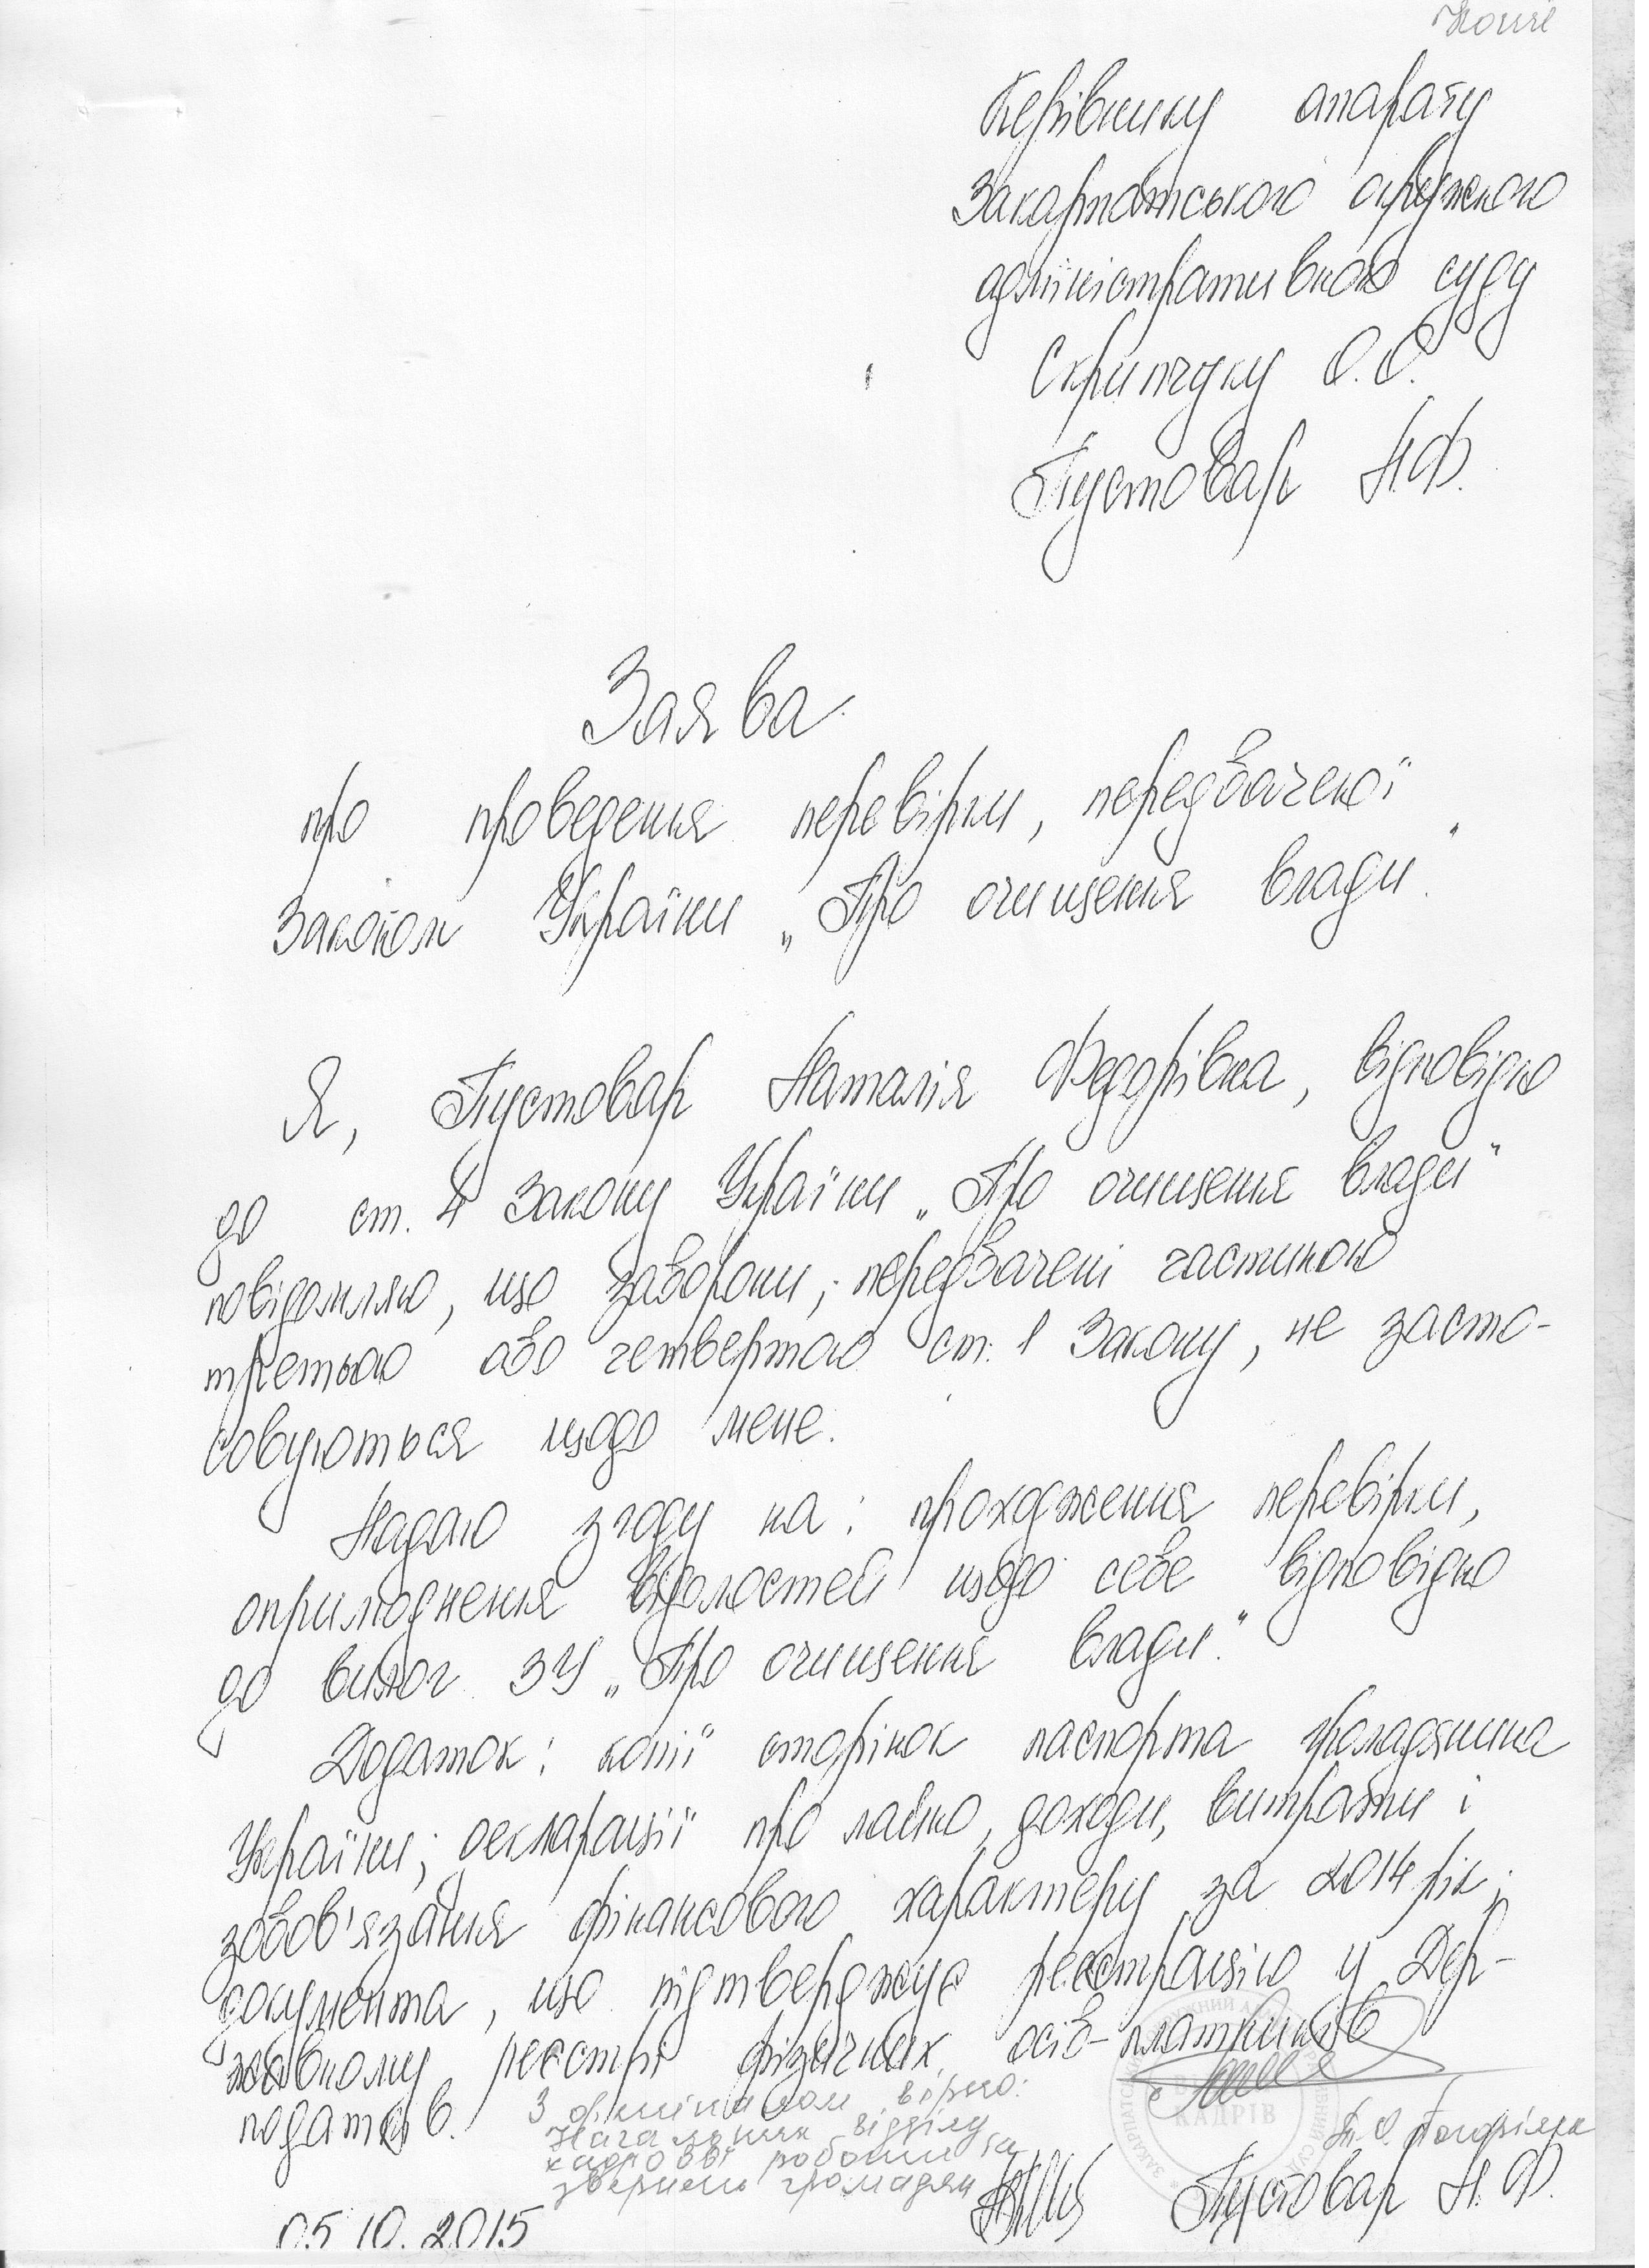 Копія
Керівнику апарату
Закарпатського окружного
адміністративного суду
Скрипчуку О.О.
Пустовар Н.Ф.
Заява
про проведення перевірки, передбаченої
Законом України „Про очищення влади"
Я, Пустовар Наталія Федорівна, відповідно
до ст. 4 Закону України „Про очищення влади"
повідомляю, що заборони, передбачені частиною
третьою або четвертою ст. 1 Закону, не засто-
совуються щодо мене.
Надаю згоду на: проходження перевірки,
оприлюднення відомостей щодо себе відповідно
до вимог ЗУ „Про очищення влади".
Додаток: копії сторінок паспорта громадянина
України; декларації про майно, доходи, витрати і
зобов'язання фінансового характеру за 2014 рік;
документа, що підтверджує реєстрацію у Дер-
жавному реєстрі фізичних осіб-платників
податків.
З оригіналом вірно:
Начальник відділу
кадрової роботи та
звернень громадян
КАДРІВ
05.10.2015
Пустовар Н.Ф.